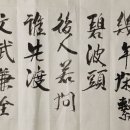 几年探系
碧波頭
後人若問
誰先渡
文武兼全